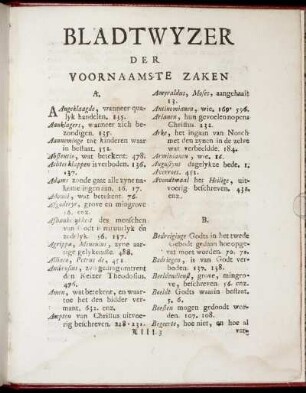 BLADTWYZER
DER
VOORNAAMSTE ZAKEN
A.
Aangeklaagde, wanneer qua-
lyk handelen. 135.
Aanklagers, wanneer zich be-
zondigen. 135.
Aanneeminge tot kinderen waar
in bestaat. 352.
Absentie, wat betekent. 478.
136,
137.
Adams zonde gaat alle zyne na-
komelingen aan. 16. 17.
Adonai, wat betekent. 76.
Afgodery, grove en mingrove
16. enz.
van den menschen
van Godt is natuurlyk en
zedelyk. 36. 137.
Agrippa, Menenius, zyne aar-
tige gelykenisse. 488.
Alliaco, Petrus de, 451.
Ambrosius, zyn gezang ontroert
den Keizer Theodosius.
476.
Amen, wat betekent, en waar-
toe het den bidder ver-
mant. 632. enz.
Ampten van Christus uitvoe-
rig beschreven. 218-231.
Amyraldus, Moses, aangehaalt
13.
Antinomianen, wie. 169. 396.
Arianen, hun gevoelen nopens
Christus 232.
Arke, het ingaan van Noach
met den zynen in de zelve
wat verbeeldde. 184.
Arminianen, wie. 16.
Augustyns dagelykze bede. 1.
Averroes. 451.
Avondtmaal het Heilige, uit-
voerig beschreven. 432.
enz.
B.
Bedriginge Godts in het twede
Gebodt gedaan hoe opge-
vat moet worden. 70. 71.
Bedriegen, is van Godt ver-
boden. 137. 138.
Beeldendienst, grove, mingro-
ve, beschreven. 56. enz.
Beeldt Godts waarin bestaat.
5. 6.
Beesten mogen gedoodt wor-
den. 107. 108.
Begeerte, hoe niet, en hoe al